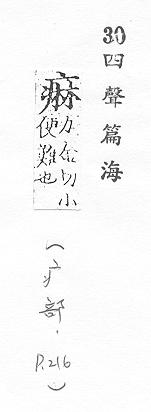 30四聲篇海
痳力金切小
便難也
(疒部.P.216)